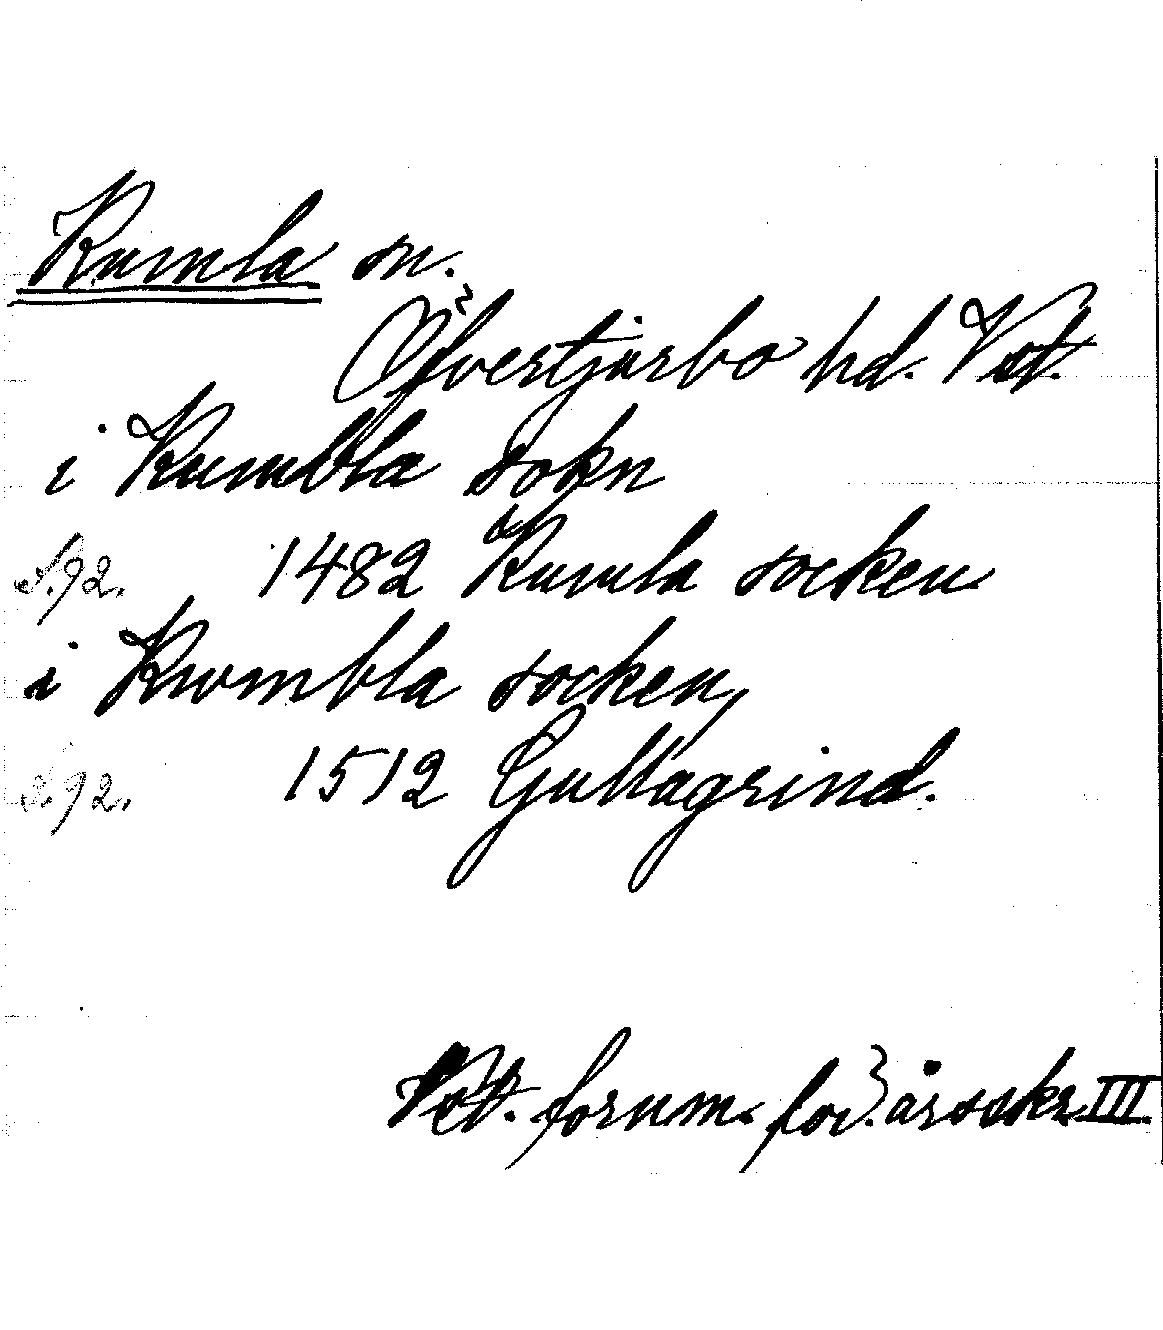 Kumla sn.
Övertjurbo hd. Vst.
i Kumbla sokn
S. 92. 1482 Kumla socken
i Kwmbla socken,
S. 92. 1512 Gullagrind.
Vst. fornm. för. årsskr. III.